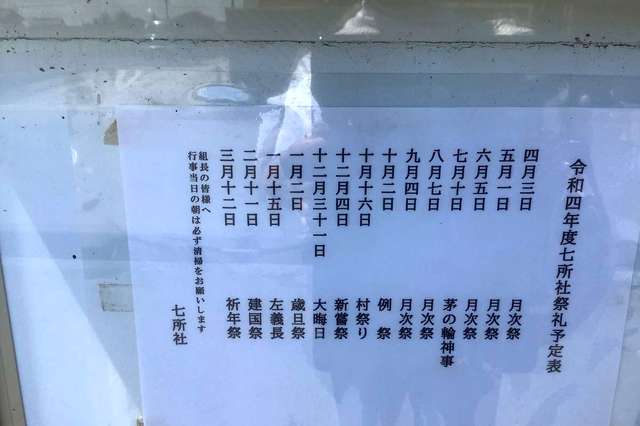 令和四年度七所社祭礼予定表
四月三日 月次祭
五月一日 月次祭
六月五日 月次祭
七月十日 茅の輪神事
八月七日 月次祭
九月四日 月次祭
十月二日 例 祭
十月十六日 村祭り
十二月四日 新嘗祭
十二月三十一日 大晦日
一月二日 歳旦祭
一月十五日 左義長
二月十一日 建国祭
三月十二日 祈年祭
組長の皆様へ
行事当日の朝は必ず清掃をお願いします
七所社